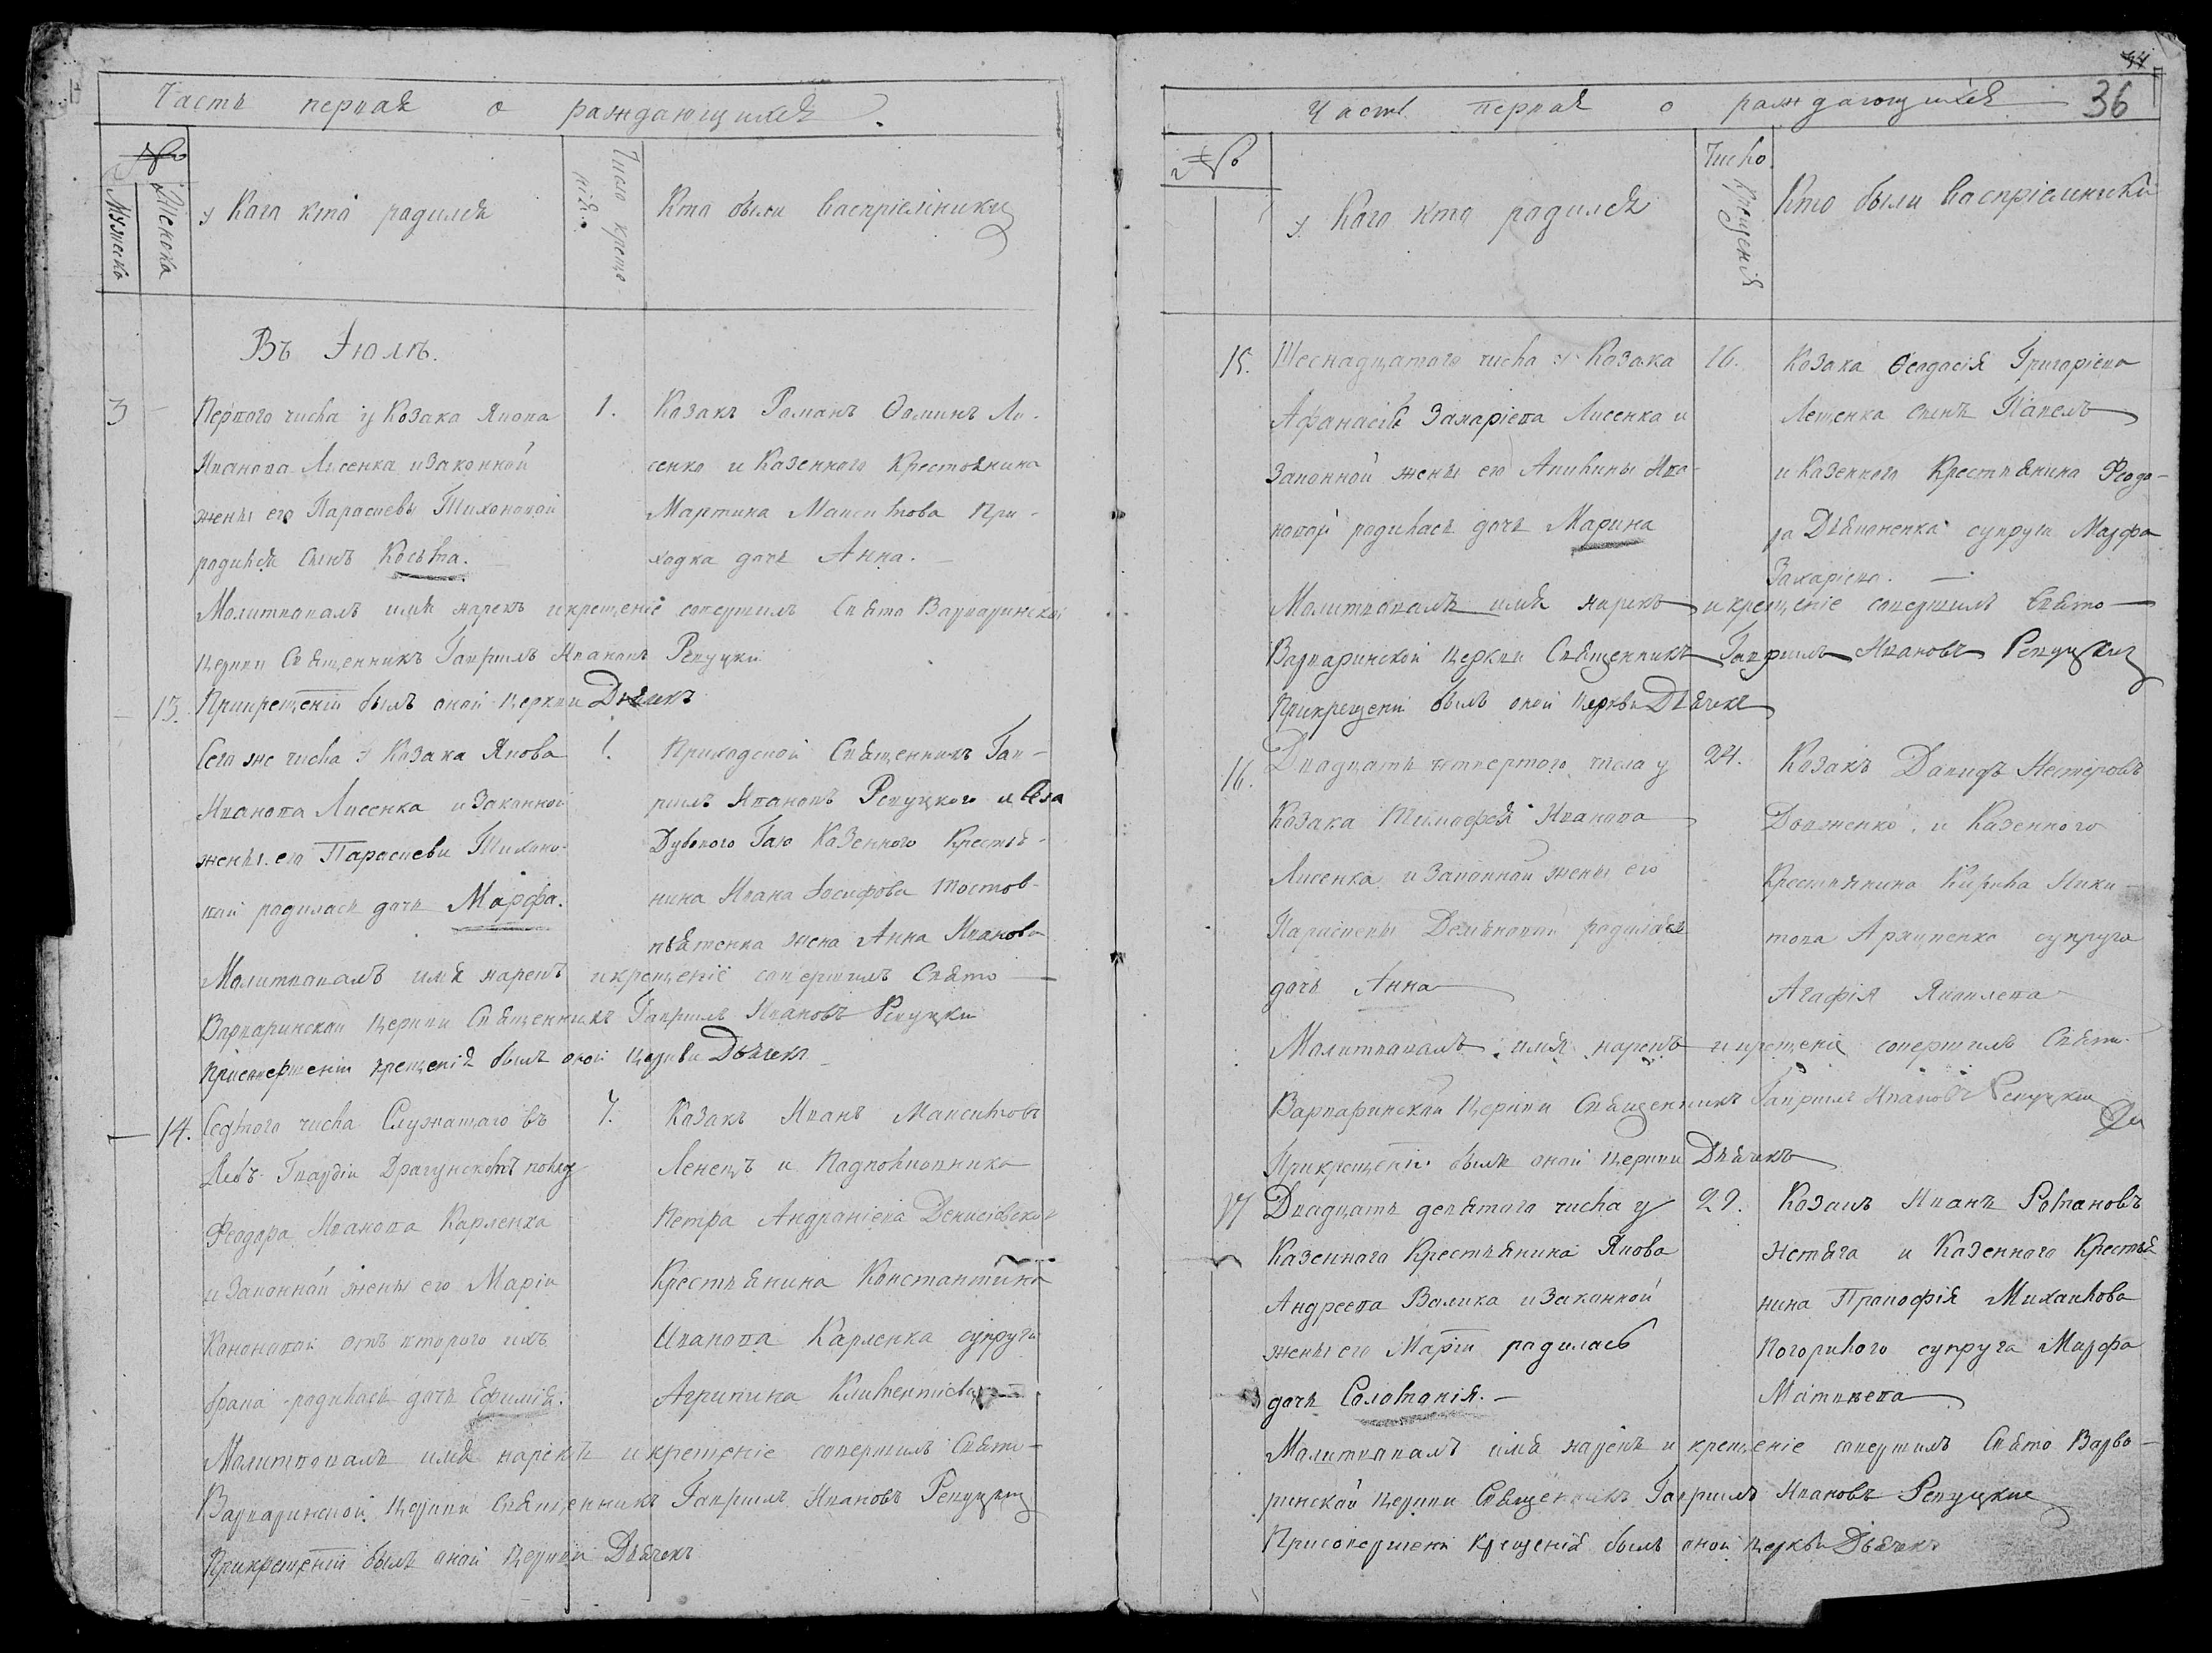 Часть первая о раждающихся.
№
Мужеска
Женска
у Кого кто родился
Число креще-
нія.
Кто были Васпріемники
Въ Іюлѣ.
3
Первого числа у Козака Якова
Иванова Лисенка и Законной
жены его Параскевы Тихоновой
родился сынъ Косьма.
1.
Козакъ Романъ Фоминъ Ли-
сенко и Казенного Крестьянина
Мартина Максимова При-
ходка дочь Анна. —
Молитвовалъ имя нарекъ и крещеніе совершилъ Свято Варваринской
церкви Священникъ Гавріилъ Ивановъ Репуцки
При крещеніи былъ оной церкви Дьячекъ
13.
Сего же числа у Козака Якова
Иванова Лисенка и Законной
жены его Параскевы Тихоно-
вой родилась дочь Марфа.
1.
Приходской Священникъ Гав-
ріилъ Ивановъ Репуцкого и Села
Дубового Гаю Казенного Крестья-
нина Ивана Іосифова Товстов-
пятенка жена Анна Иванова
Молитвовалъ имя нарекъ и крещеніе совершилъ Свято —
Варваринской церкви Священникъ Гавріилъ Ивановъ Репуцки
При совершеніи крещенія былъ оной церкви Дьячекъ
14.
Седмого числа Служащаго въ
Лейбъ Гвардіи Драгунскомъ полку
Феодора Иванова Карленка
и Законной жены его Маріи
Кононовой отъ второго ихъ
брака родилась дочь Ефимія.
7.
Козакъ Иванъ Максимовъ
Ленецъ и Подполковника
Петра Андраніева Денисіевского
Крестьянина Константина
Иванова Карленка супруга
Агрипина Климентіева —
Молитвовалъ имя нарекъ и крещеніе совершилъ Свято-
Варваринской церкви Священникъ Гавріилъ Ивановъ Репуцкий
При крещеніи былъ оной церкви Дьячекъ
36
Часть первая о раждающихся
№
у Кого кто родился
Число Крещенія
Кто были Васпріемники
15.
Шеснадцатого числа у Козака
Афанасія Захаріева Лисенка и
Законной жены его Акилины Ива-
новой родилась дочь Марина
16.
Козака Феодосія Григоріева
Лещенка сынъ Павелъ
и Казенного Крестьянина Феодо-
ра Дьяконенка супруга Марфа
Захаріева. —
Молитвовалъ имя нарекъ и крещеніе совершилъ Свято —
Варваринской церкви Священникъ Гавріилъ Ивановъ Репуцкий
При крещеніи былъ оной церкви Дьячекъ
16.
Двадцать четвертого числа у
Козака Тимофея Иванова
Лисенка и Законной жены его
Параскевы Демьяновой родилась
дочь Анна
24.
Козакъ Давидъ Нестеровъ
Довженко и Казенного
Крестьянина Кирила Ники
това Архипенка супруга
Агафія Яковлева
Молитвовалъ имя нарекъ и крещеніе совершилъ Свято-
Варваринской церкви Священникъ Гавріилъ Ивановъ Репуцкий
При крещеніи былъ оной церкви Дьячекъ
17
Двадцать девятого числа у
Казенного Крестьянина Якова
Андреева Валика и Законной
жены его Маріи родилась
дочь Соломонія. —
29.
Козакъ Иванъ Романовъ
и Казенного Крестья
нина Прокофія Михайлова
Погорилого супруга Марфа
Матвеева
Молитвовалъ имя нарекъ и крещеніе совершилъ Свято Варва-
ринской церкви Священникъ Гавріилъ Ивановъ Репуцкие
При совершени крещенія былъ оной церкви Дьячекъ